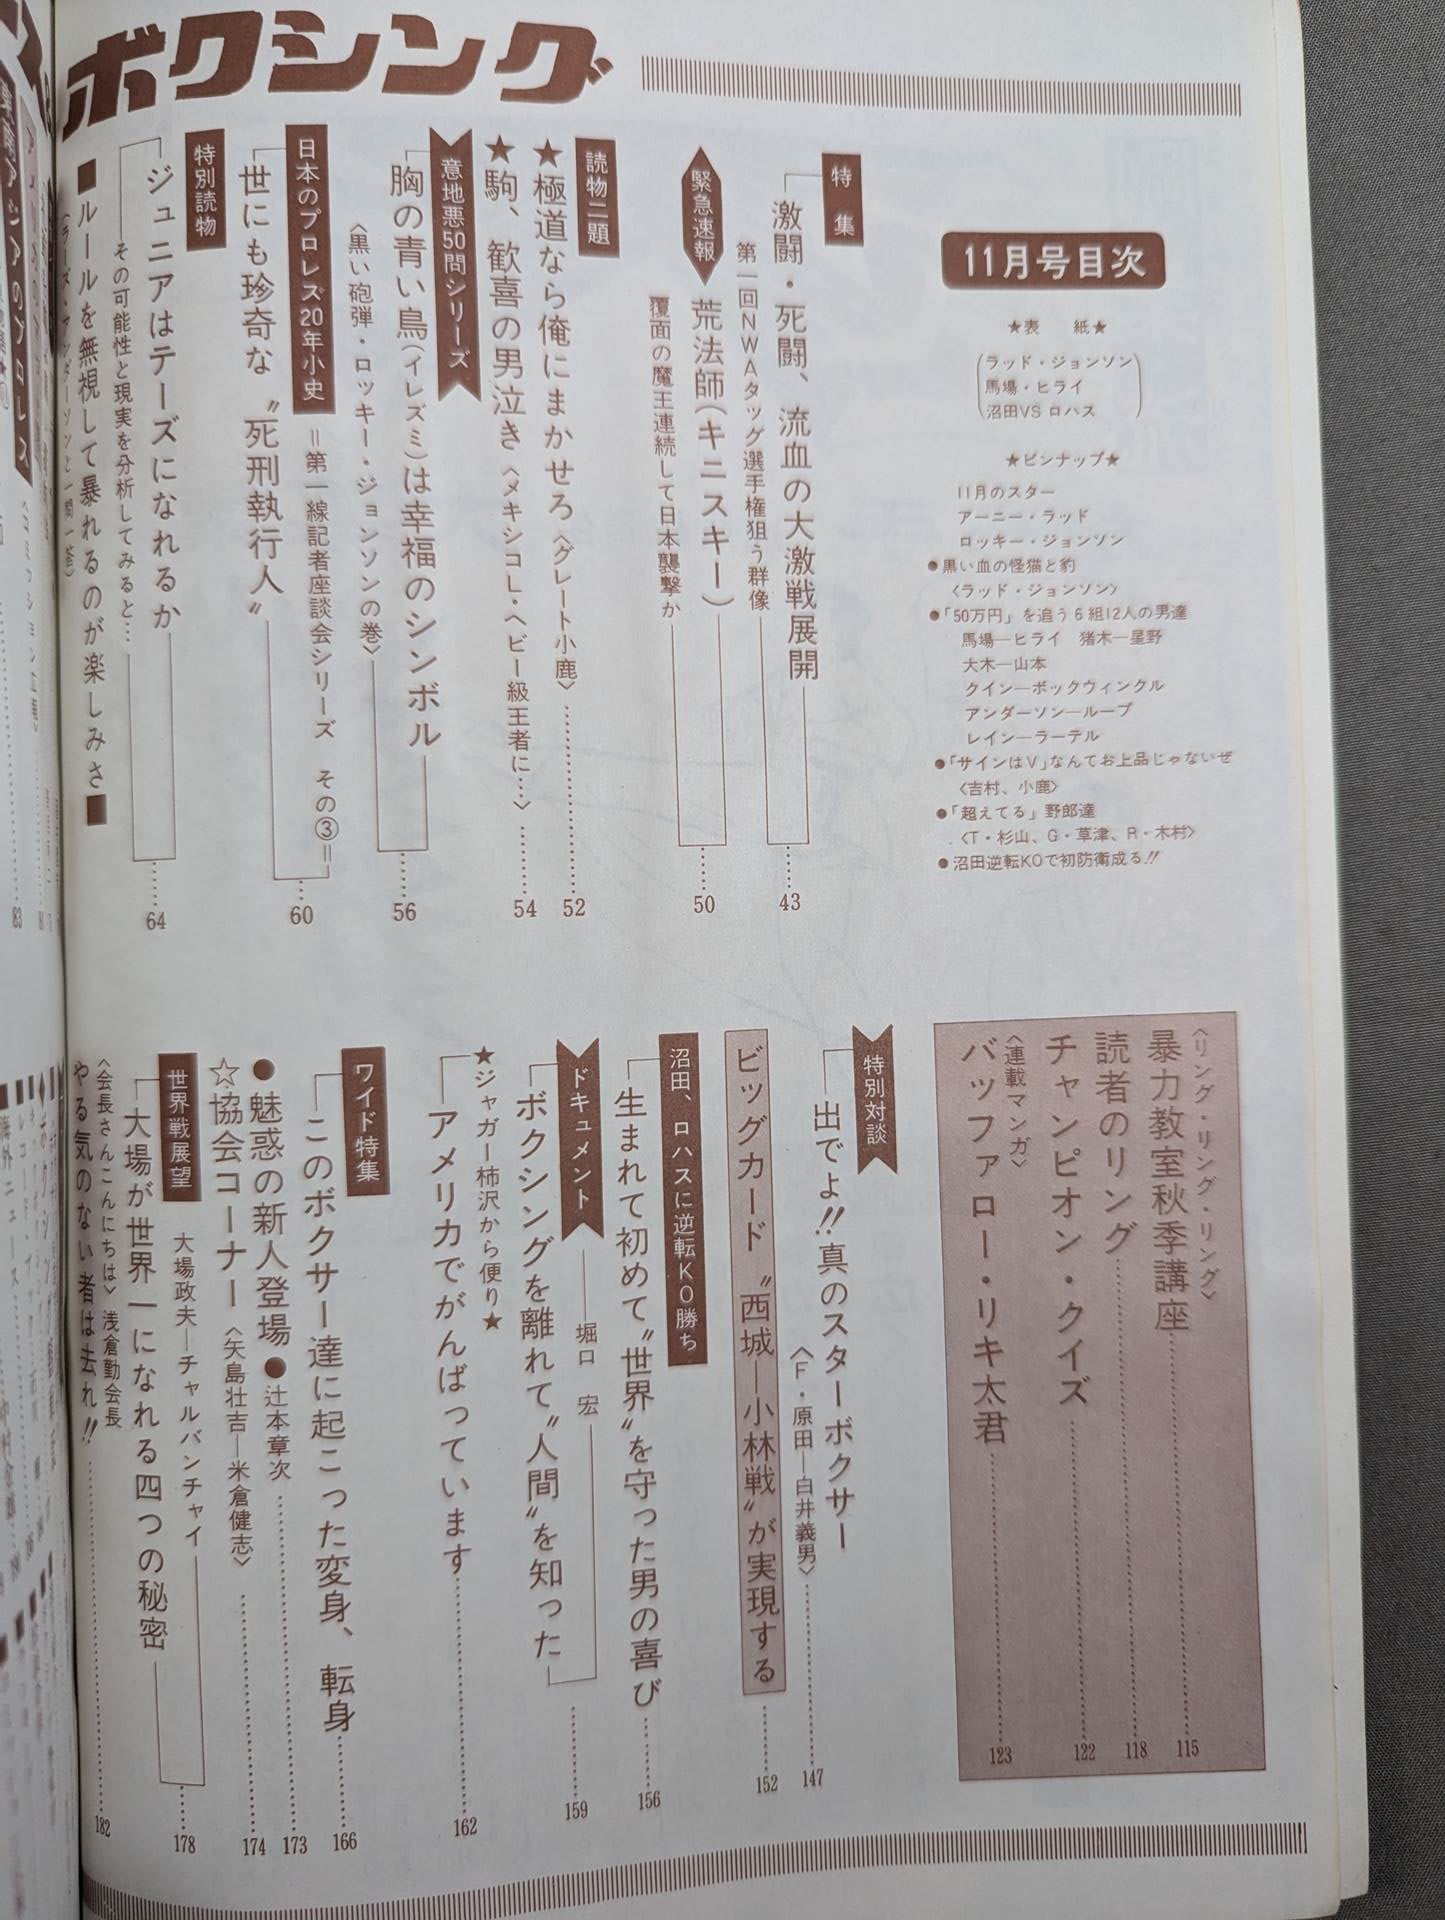 ボクシング
11月号目次
★表　紙★
ラッド・ジョンソン
馬場・ヒライ
沼田VSロハス
★ピンナップ★
11月のスター
アーニー・ラッド
ロッキー・ジョンソン
●黒い血の怪猫と豹
〈ラッド・ジョンソン〉
●「50万円」を追う6組12人の男達
馬場―ヒライ　猪木―星野
大木―山本
クイン―ボックウィンクル
アンダーソン―ループ
レイン―ラーテル
●「サインはV」なんてお上品じゃないぜ
〈吉村、小鹿〉
●「超えてる」野郎達
〈T・杉山、G・草津、R・木村〉
●沼田逆転KOで初防衛成る!!
特集
激闘・死闘、流血の大激戦展開
第一回NWAタッグ選手権狙う群像
43
緊急速報
荒法師(キニスキー)
覆面の魔王連続して日本襲撃か
50
読物二題
★極道なら俺にまかせろ〈グレート小鹿〉
52
★駒、歓喜の男泣き〈メキシコL・ヘビー級王者に…〉
54
意地悪50問シリーズ
胸の青い鳥(イレズミ)は幸福のシンボル
〈黒い砲弾・ロッキー・ジョンソンの巻〉
56
日本のプロレス20年小史
=第一線記者座談会シリーズ　その③=
世にも珍奇な〝死刑執行人〟
60
特別読物
ジュニアはテーズになれるか
その可能性と現実を分析してみると…
64
■ルールを無視して暴れるのが楽しみさ■
〈リング・リング・リング〉
暴力教室秋季講座
115
読者のリング
118
チャンピオン・クイズ
122
〈連載マンガ〉
バッファロー・リキ太君
123
特別対談
出でよ!!真のスターボクサー
〈F・原田―白井義男〉
147
ビッグカード〝西城―小林戦〟が実現する
152
沼田、ロハスに逆転KO勝ち
生まれて初めて〝世界〟を守った男の喜び
156
ドキュメント
堀口　宏
ボクシングを離れて〝人間〟を知った
159
★ジャガー柿沢から便り★
アメリカでがんばっています
162
ワイド特集
このボクサー達に起こった変身、転身
166
●魅惑の新人登場●辻本章次
173
☆協会コーナー〈矢島壮吉―米倉健志〉
174
世界戦展望
大場政夫―チャルバンチャイ
大場が世界一になれる四つの秘密
178
〈会長さんこんにちは〉浅倉勤会長
やる気のない者は去れ!!
182
83